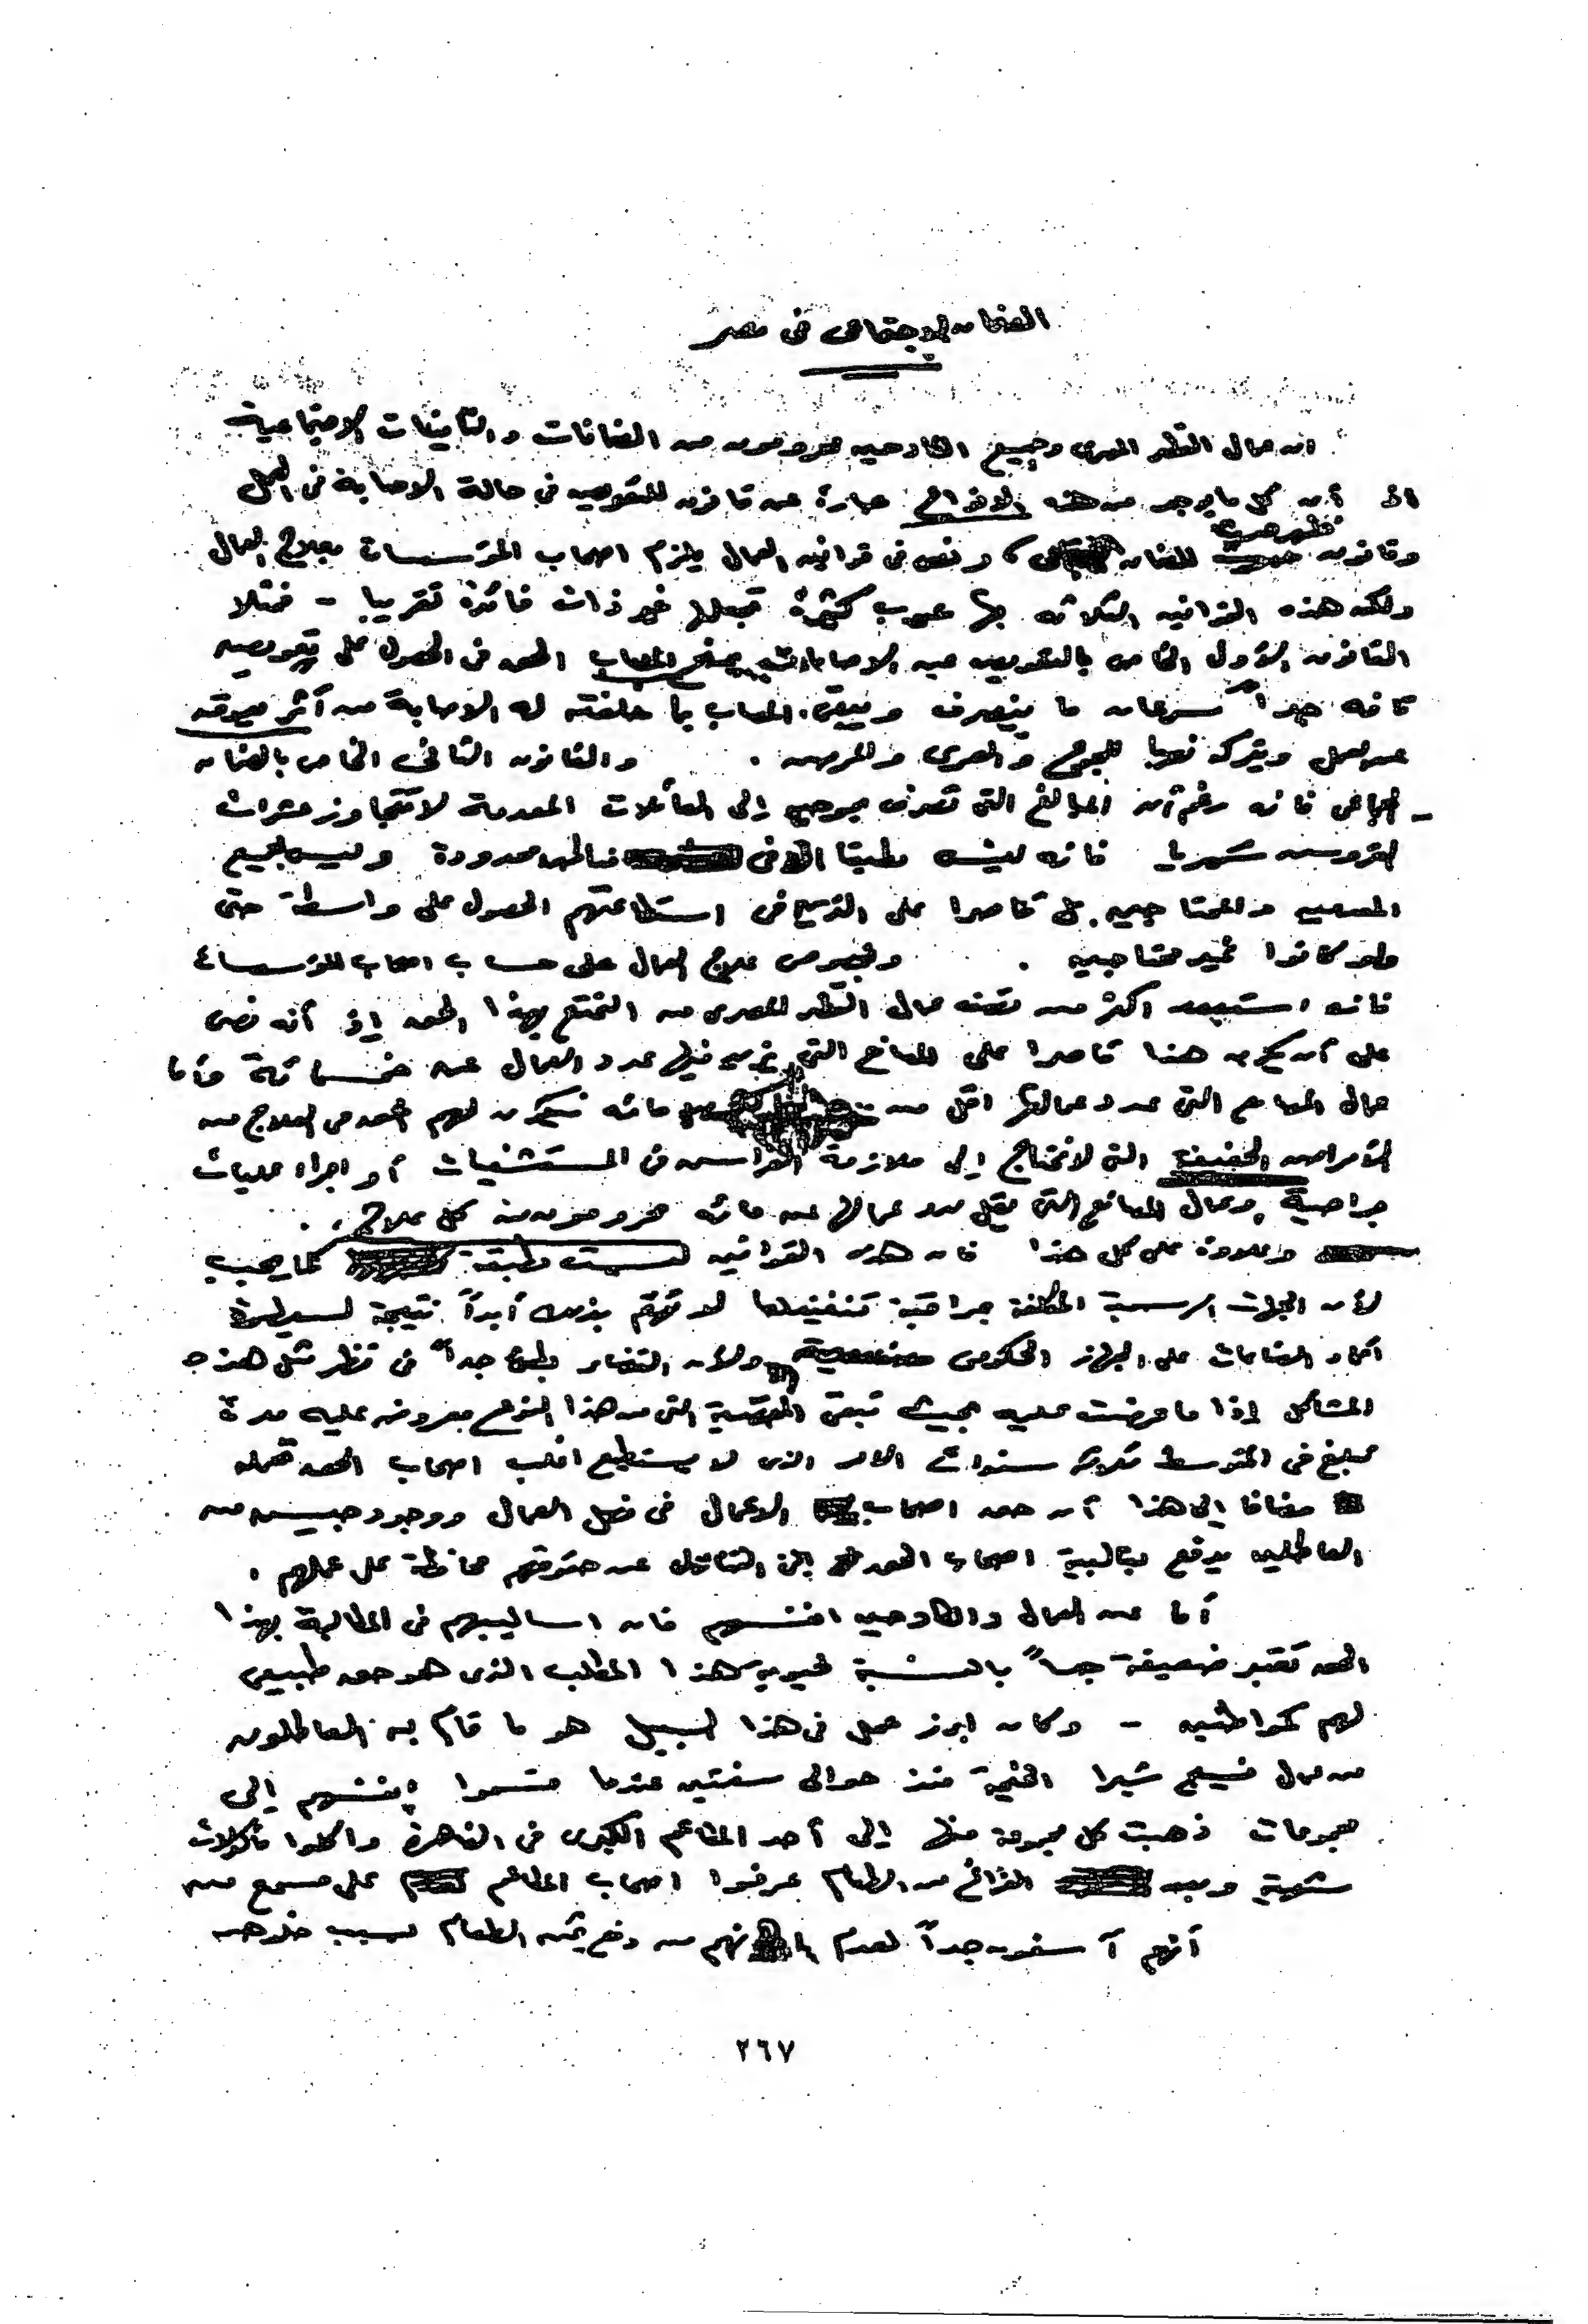 الضمان الاجتماعى فى مصر
ان عمال القطر المصرى وجميع الكادحين محرومون من الضمانات والتأمينات الاجتماعية
اذ أن كل ما يوجد من هذه الانواع عبارة عن قانون للتعويض فى حالة الاصابة فى العمل
وقانون للضمان ونص فى قوانين العمال يلزم اصحاب المؤسسات بعلاج العمال
ولكن هذه القوانين الثلاثة بها عيوب كثيرة تجعلها غير ذات فائدة تقريبا - فمثلا
القانون الأول الخاص بالتعويض عن الاصابات يمنح المصاب الحق فى الحصول على تعويض
تافه جداً سرعان ما ينصرف ويبقى المصاب بما خلفته له الاصابة من أثر معوقه
عن العمل ويترك نهبا للجوع والعرى والمرض . والقانون الثانى الخاص بالضمان
الاجتماعى فانه رغم أن المبالغ التى تصرف بموجبه إلى العائلات المعدمة لا تتجاوز عشرات
القروش شهريا فانه ليس مطبقا الا فى مناطق محدودة وليس لجميع
المعدمين والمحتاجين بل قاصرا على الذين فى استطاعتهم الحصول على واسطة حتى
ولو كانوا غير محتاجين . وبخصوص علاج العمال على حساب اصحاب المؤسسات
فانه استبعد اكثر من نصف عمال القطر المصرى من التمتع بهذا الحق إذ أنه نص
على أن يكون هذا قاصرا على المصانع التى يزيد فيها عدد العمال عن خمسمائة وأما
عمال المصانع التى عدد عمالها اقل من مائه فيكون لهم الحق فى العلاج من
الأمراض الخفيفة التى لا تحتاج إلى ملازمة الفراش فى المستشفيات أو اجراء عمليات
جراحية وعمال المصانع التى يقل عدد عمالها عن مائه محرومون من كل علاج .
وعلاوة على كل هذا فان هذه القوانين ليست مطبقة كما يجب
لأن الجهات الرسمية المكلفة بمراقبة تنفيذها لا تهتم بذلك أبداً نتيجة لسيطرة
اتحاد الصناعات على الجهاز الحكومى ولأن القضاء بطئ جداً فى نظر مثل هذه
المشاكل إذا ما عرضت عليه بحيث تبقى القضية التى من هذا النوع معروضه عليه مدة
تبلغ فى المتوسط ثلاث سنوات الامر الذى لا يستطيع اغلب اصحاب الحق تحمله
مضافا إلى هذا أن حق اصحاب الاعمال فى فصل العمال ووجود جيش من
العاطلين يدفع بغالبية اصحاب الحق إلى التنازل عن حقوقهم محافظة على عملهم .
أما عن العمال والكادحين انفسهم فان اساليبهم فى المطالبة بهذا
الحق تعتبر ضعيفة جداً بالنسبة لحيوية هذا المطلب الذى هو حق طبيعى
لهم كمواطنين - وكان ابرز عمل فى هذا السبيل هو ما قام به العاطلون
من عمال نسيج شبرا الخيمة منذ حوالى سنتين عندما قسموا انفسهم إلى
مجموعات ذهبت كل مجموعة منها إلى أحد المطاعم الكبرى فى القاهرة واكلوا مأكولات
شهية وبعد الفراغ من الطعام عرفوا اصحاب المطاعم على مسمع من
أنهم آسفون جداً لعدم من دفع ثمن الطعام بسبب
٢٦٧